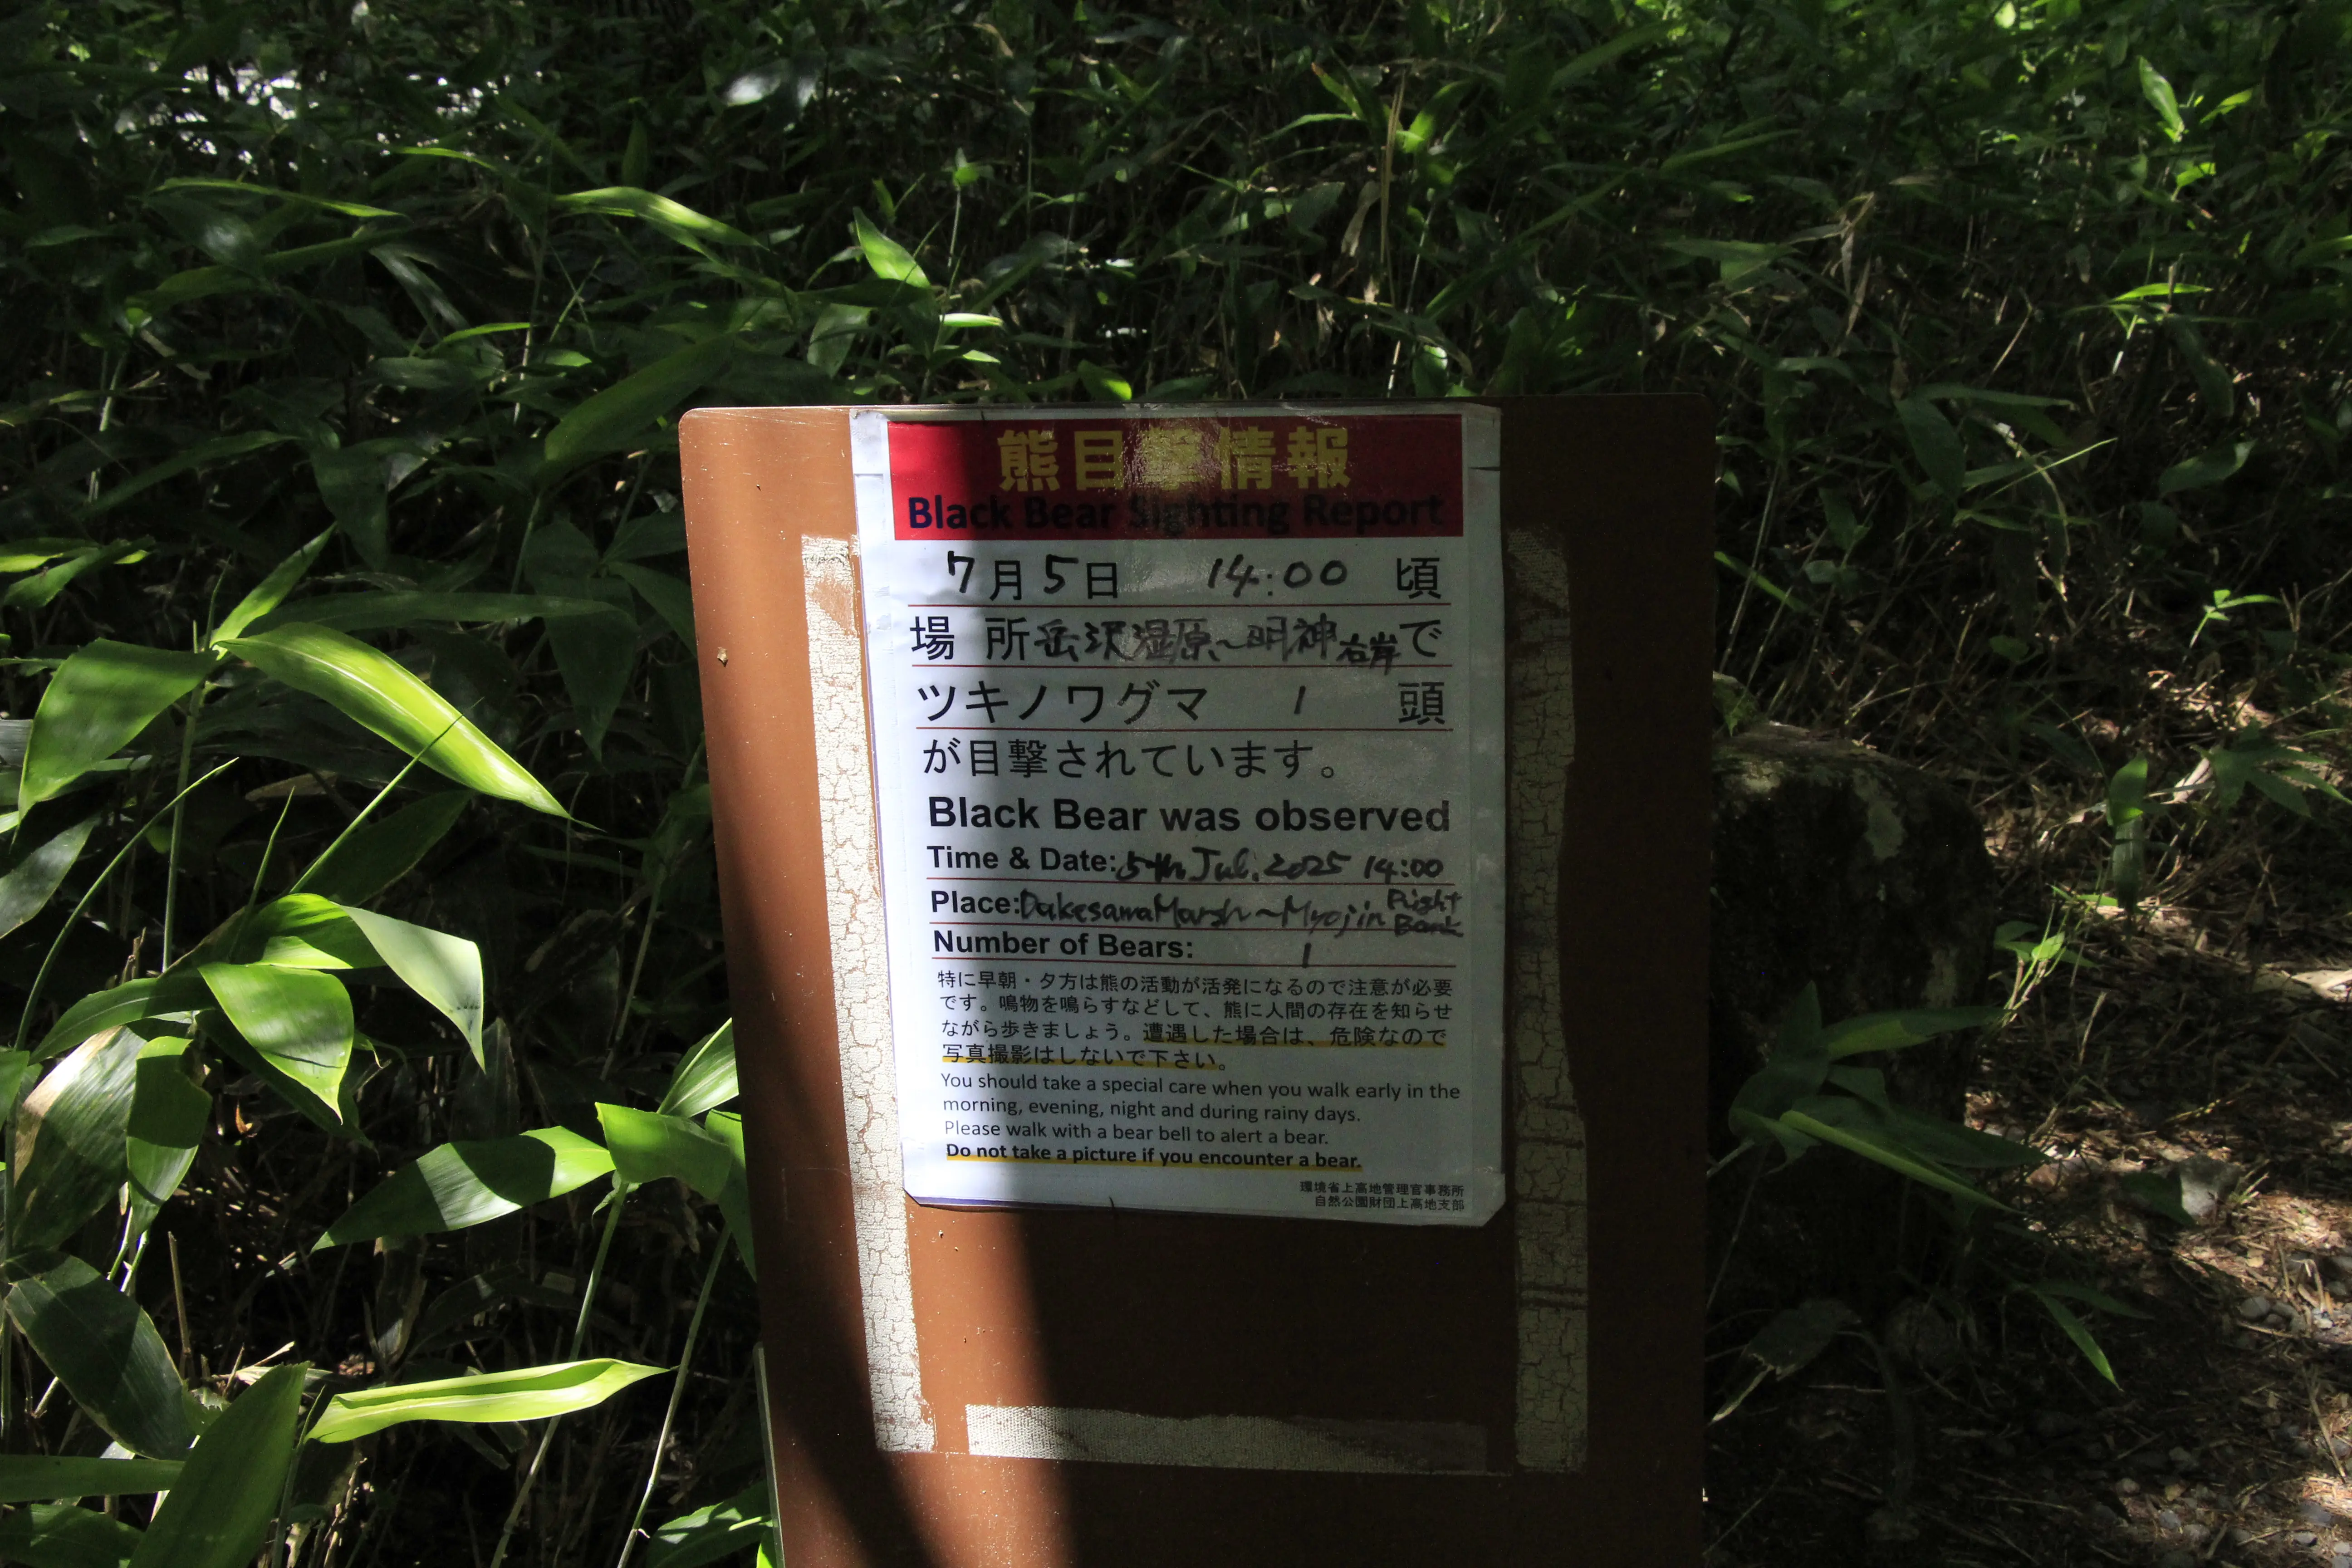 熊目撃情報
Black Bear Sighting Report
7月5日 14:00 頃
場 所 岳沢湿原~明神右岸で
ツキノワグマ 1 頭
が目撃されています。
Black Bear was observed
Time & Date: 5th Jul. 2025 14:00
Place: Dakesawa Marsh ~ Myojin Right Bank
Number of Bears: 1
特に早朝・夕方は熊の活動が活発になるので注意が必要
です。鳴物を鳴らすなどして、熊に人間の存在を知らせ
ながら歩きましょう。遭遇した場合は、危険なので
写真撮影はしないで下さい。
You should take a special care when you walk early in the
morning, evening, night and during rainy days.
Please walk with a bear bell to alert a bear.
Do not take a picture if you encounter a bear.
環境省上高地管理官事務所
自然公園財団上高地支部